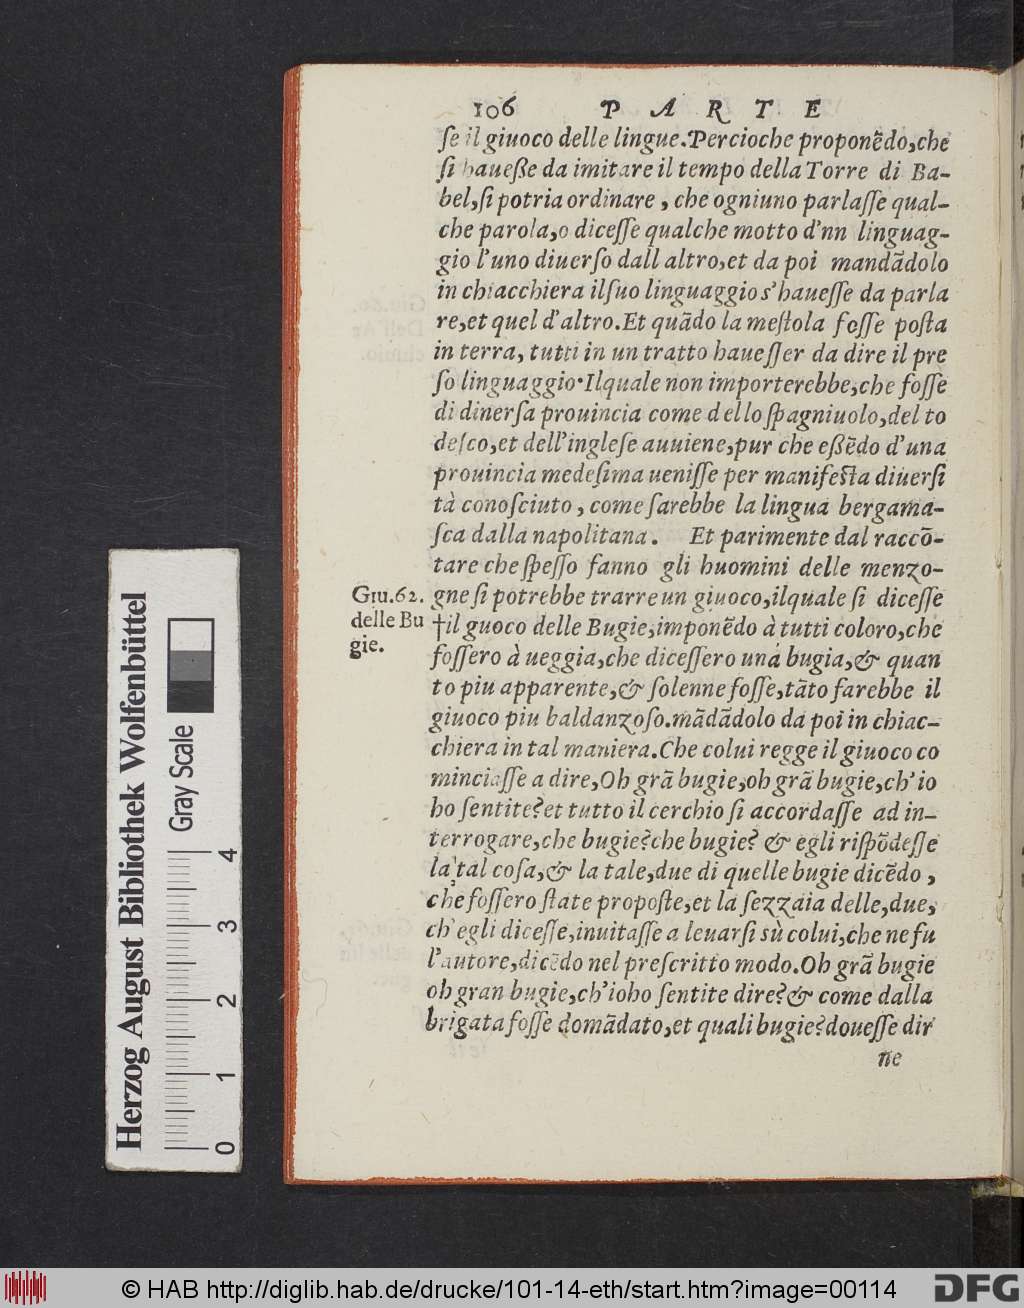 106 PARTE
ſe il giuoco delle lingue.Percioche proponẽdo,che
ſi haueße da imitare il tempo della Torre di Ba-
bel,ſi potria ordinare , che ogniuno parlaſſe qual-
che parola,o diceſſe qualche motto d'nn linguag-
gio l'uno diuerſo dall altro,et da poi mandãdolo
in chiacchiera ilſuo linguaggio s'haueſſe da parla
re,et quel d'altro.Et quãdo la meſtola foſſe poſta
in terra, tutti in un tratto haueſſer da dire il pre
ſo linguaggio.Ilquale non importerebbe,che foſſe
di dinerſa prouincia come dello ſpagniuolo,del to
deſco,et dell'ingleſe auuiene,pur che eßẽdo d'una
prouincia medeſima ueniſſe per manifeſta diuerſi
tà conoſciuto , come ſarebbe la lingua bergama-
ſca dalla napolitana. Et parimente dal raccõ-
tare che ſpeſſo fanno gli huomini delle menzo-
Giu.62. gne ſi potrebbe trarre un giuoco,ilquale ſi diceſſe
delle Bu †il guoco delle Bugie,imponẽdo à tutti coloro,che
gie. foſſero à ueggia,che diceſſero una bugia,& quan
to piu apparente,& ſolenne foſſe,tãto farebbe il
giuoco piu baldanzoſo.mãdãdolo da poi in chiac-
chiera in tal maniera.Che colui regge il giuoco co
minciaſſe a dire,Oh grã bugie,oh grã bugie,ch'io
ho ſentite?et tutto il cerchio ſi accordaſſe ad in-
terrogare,che bugie?che bugie? & egli riſpõdeſſe
la tal coſa,& la tale,due di quelle bugie dicẽdo ,
che foſſero ſtate propoſte,et la ſezzaia delle,due,
ch'egli diceſſe,inuitaſſe a leuarſi sù colui,che ne fu
l'autore,dicẽdo nel preſcritto modo.Oh grã bugie
oh gran bugie,ch'ioho ſentite dire?& come dalla
brigata foſſe domãdato,et quali bugie?doueſſe dir
ne
Herzog August Bibliothek Wolfenbüttel
Gray Scale
0 1 2 3 4
© HAB http://diglib.hab.de/drucke/101-14-eth/start.htm?image=00114
DFG